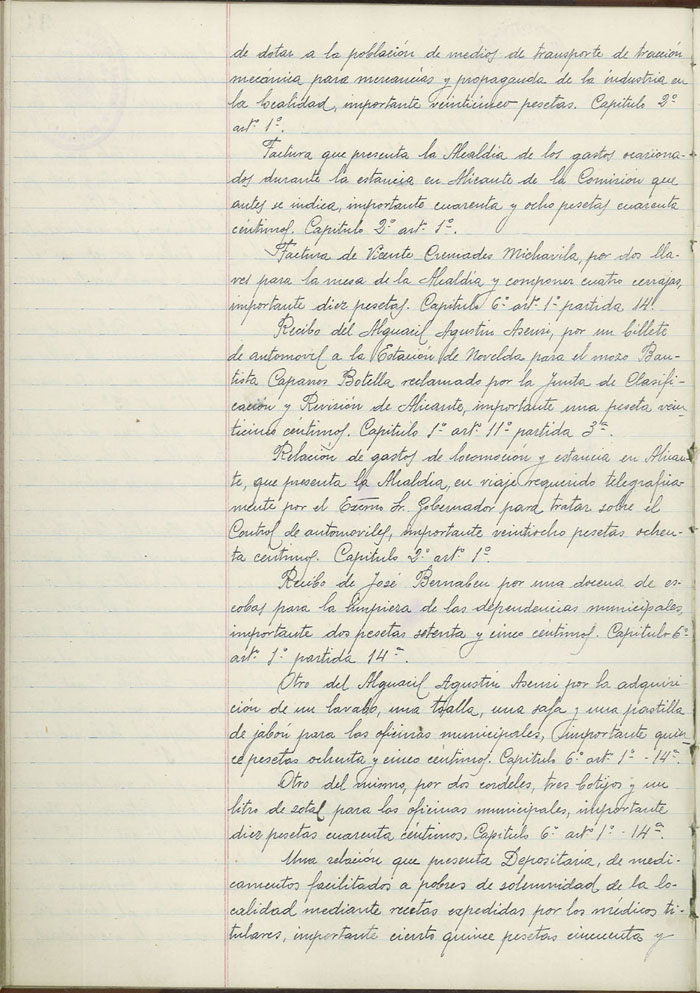 de dotar a la población de medios de transporte de tracción
mecánica para mercancías y propaganda de la industria en
la localidad, importante veinticinco pesetas. Capitulo 2º
artº 1º.
Factura que presenta la Alcaldía de los gastos ocasiona-
dos durante la estancia en Alicante de la Comisión que
antes se indica, importante cuarenta y ocho pesetas cuarenta
céntimos. Capitulo 2º artº 1º.
Factura de Vicente Cremades Michavila, por dos lla-
ves para la mesa de la Alcaldia y componer cuatro cerrajas,
importante diez pesetas. Capitulo 6º artº 1º partida 14ª
Recibo del Alguacil Agustín Asensi, por un billete
de automovil a la Estación de Novelda para el mozo Bau-
tista Caparros Botella reclamado por la Junta de Clasifi-
cación y Revisión de Alicante, importante una peseta vein-
ticinco céntimos. Capitulo 1º artº 11º partida 3ª.
Relación de gastos de locomoción y estancia en Alican-
te, que presenta la Alcaldía, en viaje requerido telegrafica-
mente por el Excmo Sr. Gobernador para tratar sobre el
Control de automoviles, importante veintiocho pesetas ochen-
ta centimos. Capitulo 2º artº 1º
Recibo de José Bernabeu por una docena de es-
cobas para la limpieza de las dependencias municipales,
importante dos pesetas setenta y cinco céntimos. Capitulo 6º
artº 1º partida 14ª.
Otro del Alguacil Agustín Asensi por la adquisi-
ción de un lavabo, una toalla, una safa y una pastilla
de jabón para las oficinas municipales, importante quin-
ce pesetas ochenta y cinco céntimos. Capitulo 6º artº 1º - 14ª.
Otro del mismo, por dos cordeles, tres botijos y un
litro de zotal para las oficinas municipales, importante
diez pesetas cuarenta céntimos. Capitulo 6º artº 1º - 14ª.
Una relación que presenta Depositaría, de medi-
camentos facilitados a pobres de solemnidad de la lo-
calidad mediante recetas expedidas por los médicos ti-
tulares, importante ciento quince pesetas cincuenta y